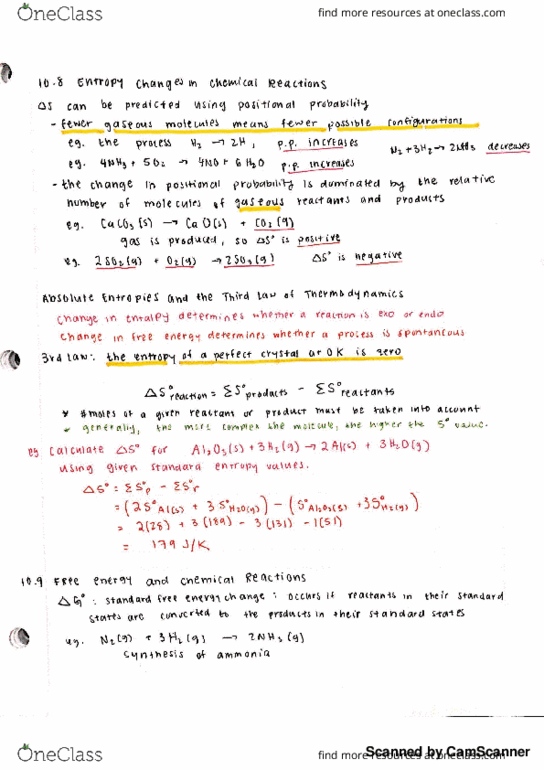 OneClass
find more resources at oneclass.com
10.8 Entropy Changes in Chemical Reactions
ΔS can be predicted using positional probability
- fewer gaseous molecules means fewer possible configurations
eg. the process H₂ → 2H, p.p. increases
N₂ + 3H₂ → 2NH₃ decreases
eg. 4NH₃ + 5O₂ → 4NO + 6H₂O p.p. increases
- the change in positional probability is dominated by the relative
number of molecules of gaseous reactants and products
eg. CaCO₃(s) → CaO(s) + CO₂(g)
gas is produced, so ΔS° is positive
eg. 2SO₂(g) + O₂(g) → 2SO₃(g) ΔS° is negative
Absolute Entropies and the Third Law of Thermodynamics
change in entalpy determines whether a reaction is exo or endo
change in free energy determines whether a process is spontanous
3rd law: the entropy of a perfect crystal at 0K is zero
ΔS°reaction = ΣS°products - ΣS°reactants
* #moles of a given reactant or product must be taken into account
* generally, the more complex the molecule, the higher the S° value.
eg calculate ΔS° for Al₂O₃(s) + 3H₂(g) → 2Al(s) + 3H₂O(g)
using given standard entropy values.
ΔS° = ΣS°p - ΣS°r
= (2S°Al(s) + 3S°H₂O(g)) - (S°Al₂O₃(s) + 3S°H₂(g))
= 2(28) + 3(189) - 3(131) - 1(51)
= 179 J/K
10.9 Free energy and chemical Reactions
ΔG°: standard free energy change: occurs if reactants in their standard
states are converted to the products in their standard states
eg. N₂(g) + 3H₂(g) → 2NH₃(g)
synthesis of ammonia
OneClass
find more resources at oneclass.com
Scanned by CamScanner